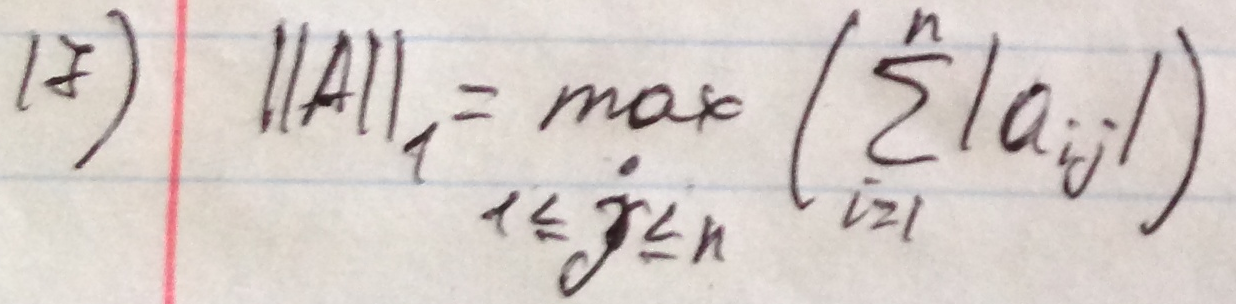 17) ||A||₁ = max_{1≤j≤n} (∑_{i=1}^{n} |a_{ij}|)